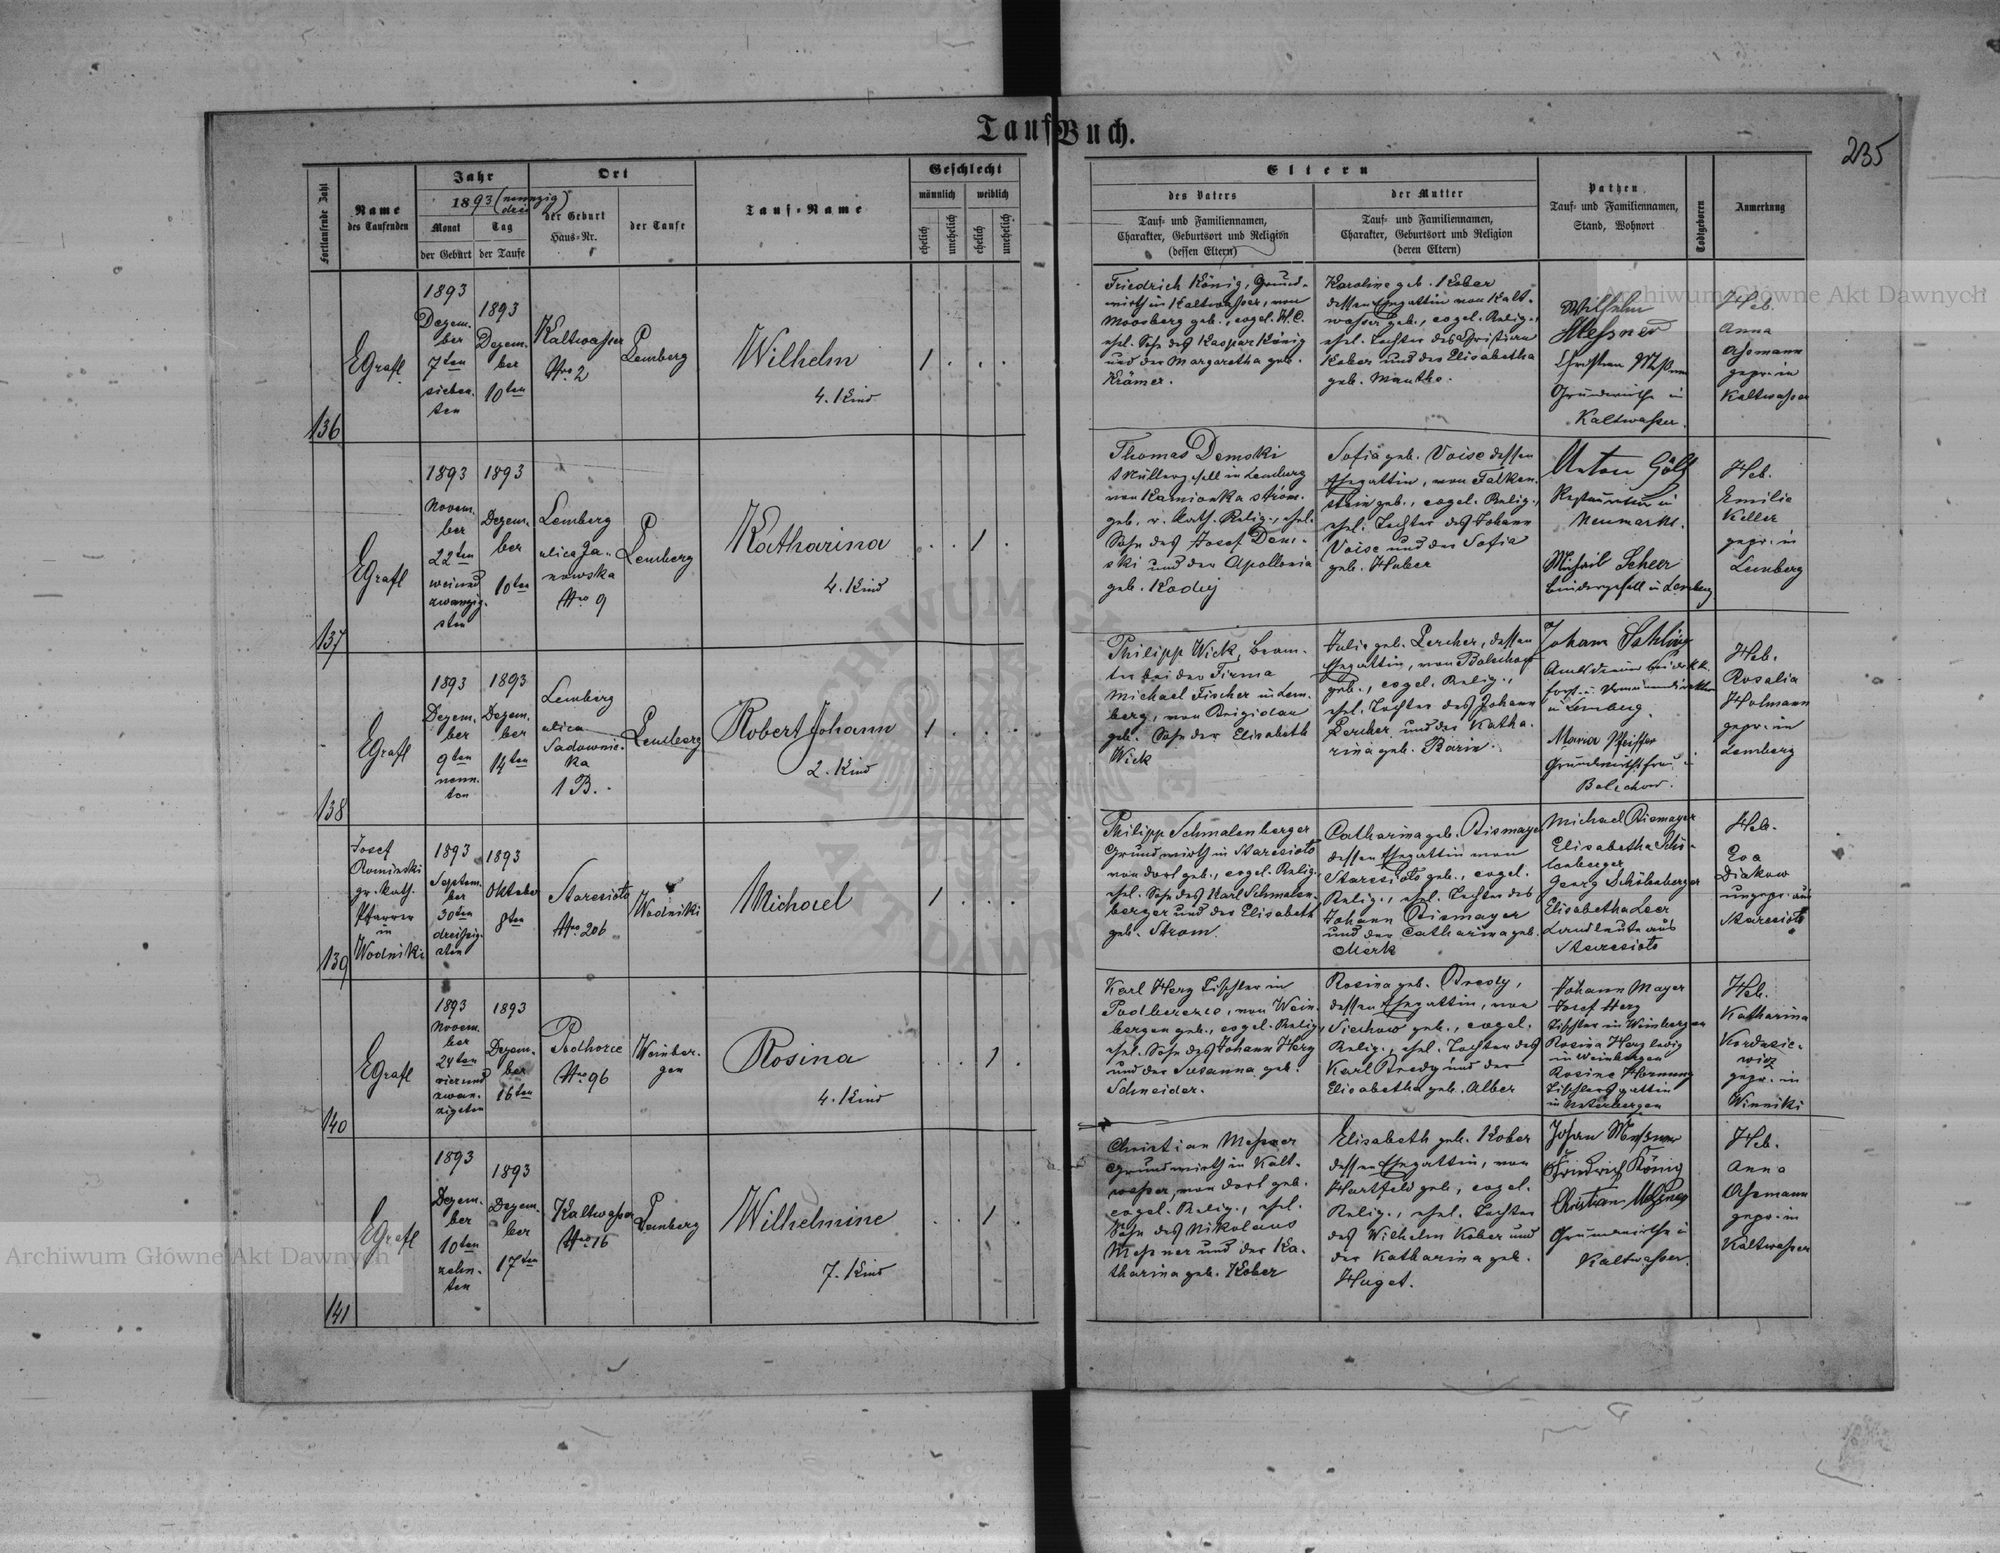 TaufBuch.
235
Fortlaufende Zahl
Name
des Taufenden
Jahr
1893 (neunzig
drei)
Monat
Tag
der Geburt
der Taufe
Ort
der Geburt
Haus-Nr.
der Taufe
Tauf-Name
Geschlecht
männlich
weiblich
ehelich
unehelich
ehelich
unehelich
Eltern
des Vaters
Tauf- und Familiennamen,
Charakter, Geburtsort und Religion
(dessen Eltern)
der Mutter
Tauf- und Familiennamen,
Charakter, Geburtsort und Religion
(deren Eltern)
Pathen
Tauf- und Familiennamen,
Stand, Wohnort
Todtgeboren
Anmerkung
136
EGrafl
1893
Dezem-
ber
7ten
sieben-
ten
1893
Dezem-
ber
10ten
Kaltwasser
Nro 2
Lemberg
Wilhelm
4. Kind
1
Friedrich König, Grund-
wirth in Kaltwasser, von
Moosberg geb., evgel. H.C.
ehel. Sohn des Kaspar König
und der Margaretha geb.
Krämer.
Karoline geb. Kober
dessen Ehegattin von Kalt-
wasser geb., evgel. Relig.,
ehel. Tochter des Christian
Kober und der Elisabetha
geb. Manthe.
Wilhelm
Meßner
Christian Meßner
Grundwirthe in
Kaltwasser.
Heb.
Anna
gepr. in
Kaltwasser
137
EGrafl
1893
Novem-
ber
22ten
zwanzig-
sten
1893
Dezem-
ber
10ten
Lemberg
ulica Ja-
nowska
Nro 9
Lemberg
Katharina
4. Kind
1
Thomas Demski
Müllergesell in Lemberg
von Kamionka strum.
geb. r. kath. Relig., ehel.
Sohn des Josef Dem-
ski und der Apollonia
geb. Kadij
Sofia geb. Voise dessen
Ehegattin, von Falken-
stein geb., evgel. Relig.,
ehel. Tochter des Johann
Voise und der Sofia
geb. Huber
Anton Götz
Restaurateur in
Neumarkt.
Michael Scheer
Bindergesell in Lemberg
Heb.
Emilie
Keller
gepr. in
Lemberg
138
EGrafl
1893
Dezem-
ber
9ten
neun-
ten
1893
Dezem-
ber
14ten
Lemberg
ulica
Sadownic-
ka
1 B.
Lemberg
Robert Johann
2. Kind
1
Philipp Wick, Beam-
ter bei der Firma
Michael Fischer in Lem-
berg, von Brigidau
geb. Sohn der Elisabeth
Wick
Julie geb. Lercher, dessen
Ehegattin, von Bolechow
geb., evgel. Relig.,
ehel. Tochter des Johann
Lercher und der Katha-
rina geb. Barin.
Johann Schling
Amtsdiener bei der k.k.
in Lemberg.
Maria Pfeiffer
Grundwirthsfrau in
Bolechow.
Heb.
Rosalia
Holmann
gepr. in
Lemberg
139
Josef
Rominski
gr. kath.
Pfarrer
in
Wodniki
1893
Septem-
ber
30ten
dreißig-
sten
1893
Oktober
8ten
Staresioło
Nro 206
Wodniki
Michael
1
Philipp Schmalenberger
Grundwirth in Staresioło
von dort geb., evgel. Relig.
ehel. Sohn des Karl Schmalen-
berger und der Elisabeth
geb. Strom.
Catharina geb. Bismayer
dessen Ehegattin von
Staresioło geb., evgel.
Relig., ehel. Tochter des
Johann Bismayer
und der Catharina geb.
Merk
Michael Bismayer
Elisabetha Schö-
lenberger
Georg Schölenberger
Elisabetha Leer
Landleute aus
Staresioło
Heb.
Eva
Diakow
ungepr. aus
Staresioło
140
EGrafl
1893
Novem-
ber
24ten
vierund
zwan-
zigsten
1893
Dezem-
ber
16ten
Podhorce
Nro 96
Weinber-
gen
Rosina
4. Kind
1
Karl Herz Tischler in
Podberezce, von Wein-
bergen geb., evgel. Relig.
ehel. Sohn des Johann Herz
und der Susanna geb.
Schneider.
Rosina geb. Bredy,
dessen Ehegattin, von
Siechow geb., evgel.
Relig., ehel. Tochter des
Karl Bredy und der
Elisabetha geb. Alber
Johann Mayer
Josef Herz
Tischler in Weinbergen
Rosina Herz ledig
in Weinbergen
Rosine Hornung
Tischlersgattin
in Unterbergen
Heb.
Katharina
Kordasie-
wicz
gepr. in
Winniki
141
EGrafl
1893
Dezem-
ber
10ten
zehn-
ten
1893
Dezem-
ber
17ten
Kaltwasser
Nro 16
Lemberg
Wilhelmine
7. Kind
1
Christian Meßner
Grundwirth in Kalt-
wasser, von dort geb.
evgel. Relig., ehel.
Sohn des Nikolaus
Meßner und der Ka-
tharina geb. Kober
Elisabeth geb. Kober
dessen Ehegattin, von
Hartfeld geb., evgel.
Relig., ehel. Tochter
des Wilhelm Kober und
der Katharina geb.
Huget.
Johann Meßner
Friedrich König
Christian Meßner
Grundwirthe in
Kaltwasser.
Heb.
Anna
gepr. in
Kaltwasser
Archiwum Główne Akt Dawnych
Archiwum Główne Akt Dawnych